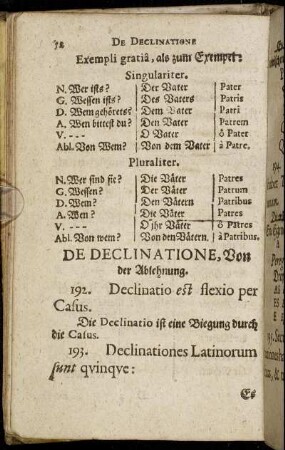 32 DE DECLINATIONE
Exempli gratiâ, als zum Exempel:
Singulariter.
N. Wer ists? Der Vater Pater
G. Wessen ists? Des Vaters Patris
D. Wem gehörets? Dem Vater Patri
A. Wen bittest du? Den Vater Patrem
V. --- O Vater ô Pater
Abl. Von Wem? Von dem Vater à Patre.
Pluraliter.
N. Wer sind sie? Die Väter Patres
G. Wessen? Der Väter Patrum
D. Wem? Den Vätern Patribus
A. Wen? Die Väter Patres
V. --- O ihr Väter ô Patres
Abl. Von wem? Von den Vätern. à Patribus.
DE DECLINATIONE, Von
der Ablehnung.
192. Declinatio est flexio per
Casus.
Die Declinatio ist eine Biegung durch
die Casus.
193. Declinationes Latinorum
sunt qvinqve:
Es